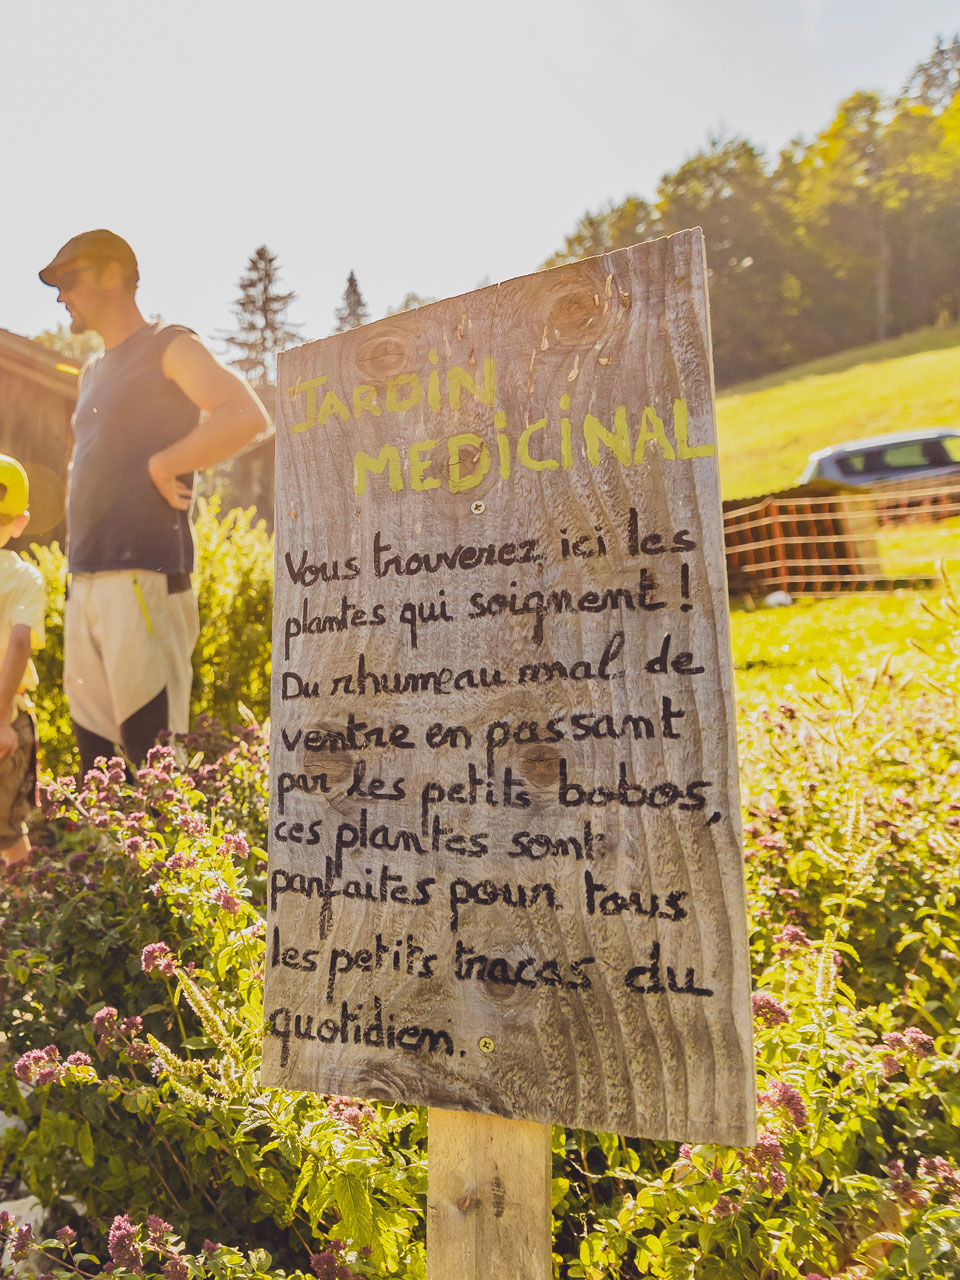 JARDiN
MEDiCiNAL
Vous trouverez ici les
plantes qui soignent !
Du rhumeau mal de
ventre en passant
par les petits bobos,
ces plantes sont
parfaites pour tous
les petits tracas du
quotidien.